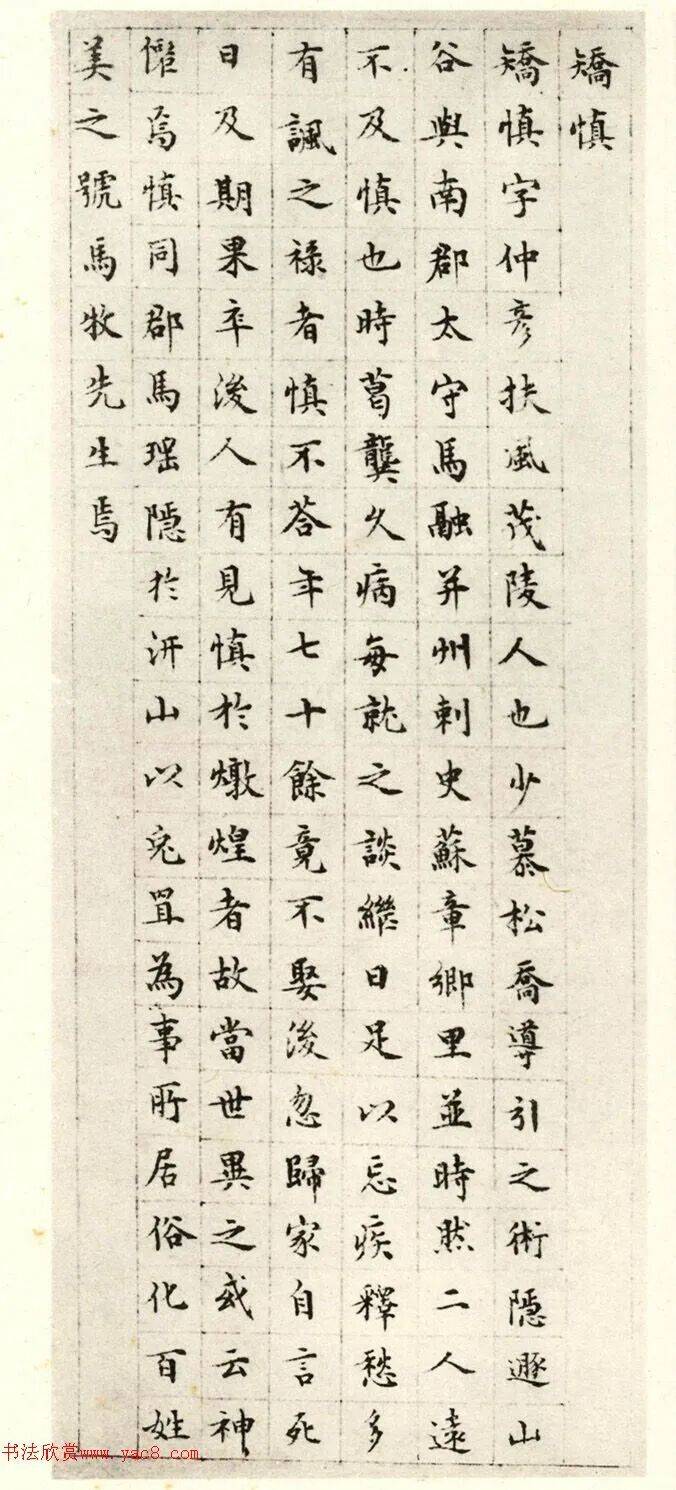 矯慎
矯慎字仲彦扶風茂陵人也少慕松喬導引之術隱遯山
谷與南郡太守馬融并州刺史蘇章鄉里並時然二人遠
不及慎也時葛龔久病每就之談繼日足以忘疾釋愁多
有諷之祿者慎不荅年七十餘竟不娶後忽歸家自言死
日及期果卒後人有見慎於燉煌者故當世異之或云神
僊焉慎同郡馬瑶隱於汧山以兔罝為事所居俗化百姓
美之號馬牧先生焉
书法欣赏www.yac8.com